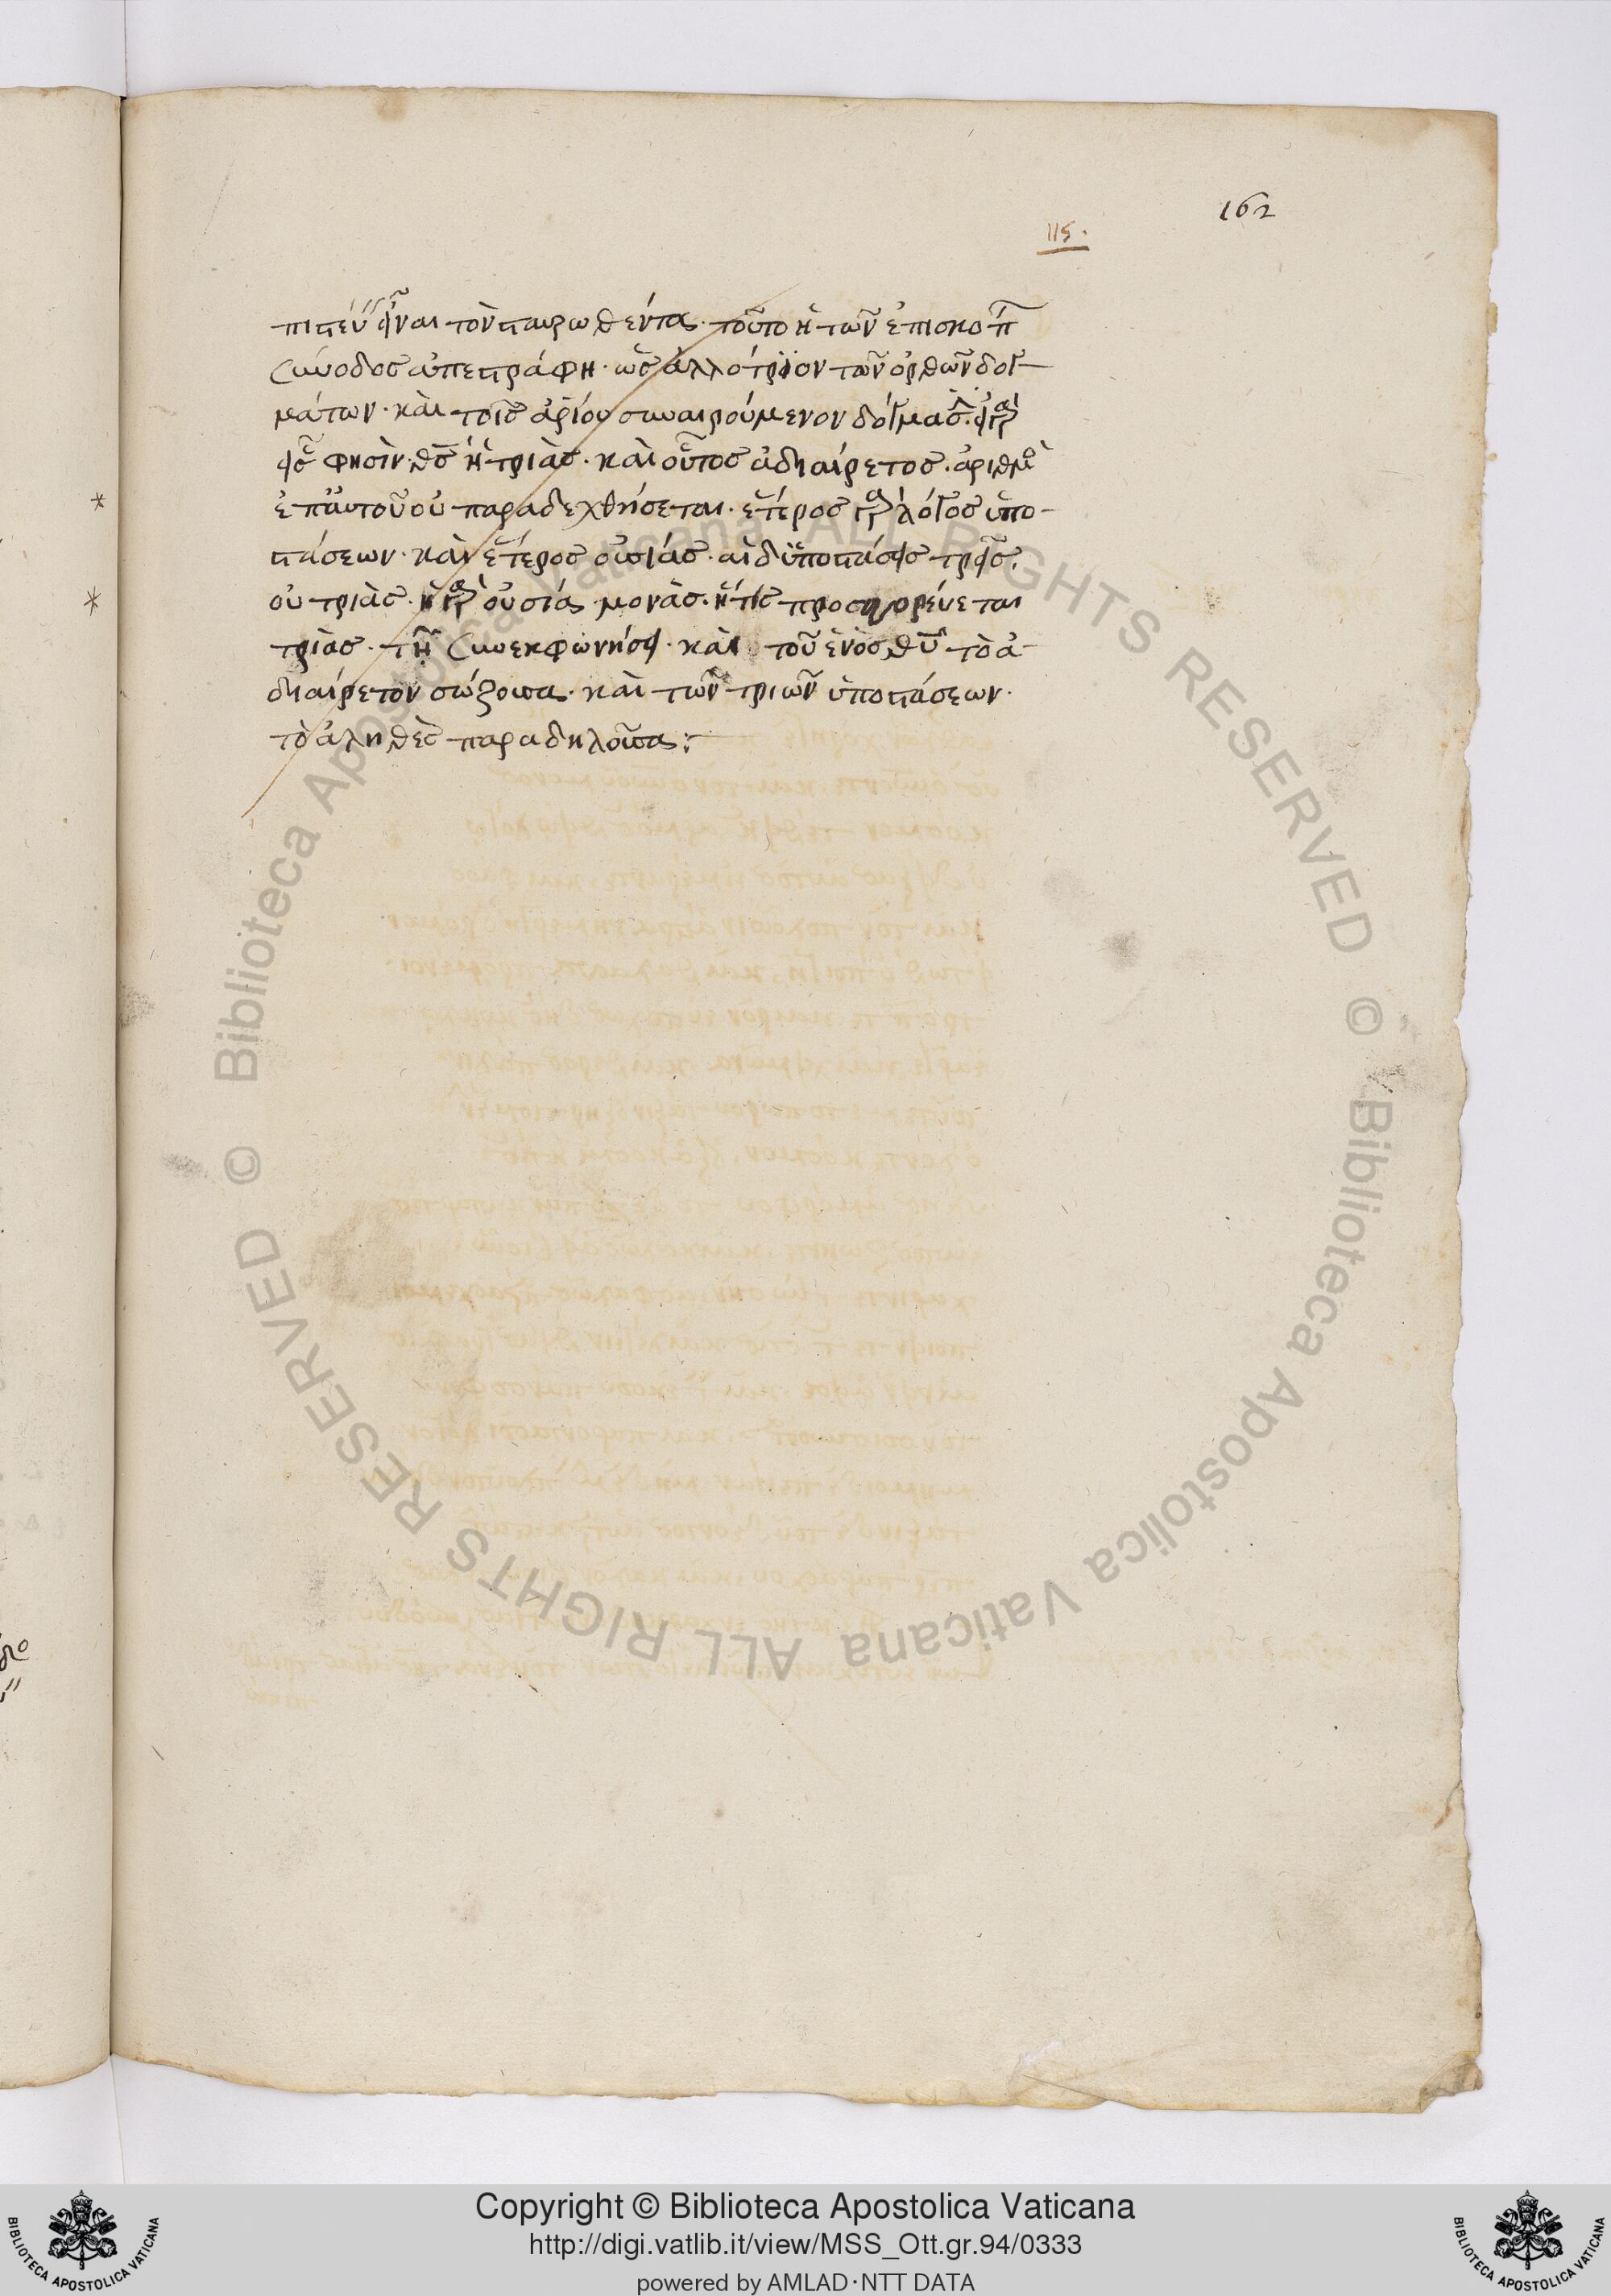 162
115.
πιστεύειν εἶναι τὸν σταυρωθέντα· τοῦτο ἡ τῶν ἐπισκόπ
συνοδος ἀπεστράφη· ὡς ἀλλότριον τῶν ὀρθῶν δογ
μάτων· καὶ τοῖς ἀρίου συναιρούμενον δόγμασι· εἰ γὰρ
εἷς φησὶν θς ἡ τριὰς· καὶ οὗτος ἀδιαίρετος· ἀριθμὸ
ἐπ αυτοῦ οὐ παραδεχθήσεται· ἕτερος γὰρ λόγος ὑπο
στάσεων· καὶ ἕτερος οὐσίας· αἱ δ ὑποστάσεις τρεῖς·
οὐ τριὰς· ἡ γὰρ οὐσία μονὰς· ἥτις προσηγορεύεται
τριὰς· τῆ συνεκφωνήσει· καὶ τοῦ ἑνὸς θυ τὸ ἀ
διαίρετον σώζουσα· καὶ τῶν τριῶν ὑποστάσεων·
τὸ ἀληθὲς παραδηλοῦσα:
© Biblioteca Apostolica Vaticana ALL RIGHTS RESERVED
© Biblioteca Apostolica Vaticana ALL RIGHTS RESERVED
Copyright © Biblioteca Apostolica Vaticana
http://digi.vatlib.it/view/MSS_Ott.gr.94/0333
powered by AMLAD·NTT DATA
BIBLIOTECA APOSTOLICA VATICANA
BIBLIOTECA APOSTOLICA VATICANA